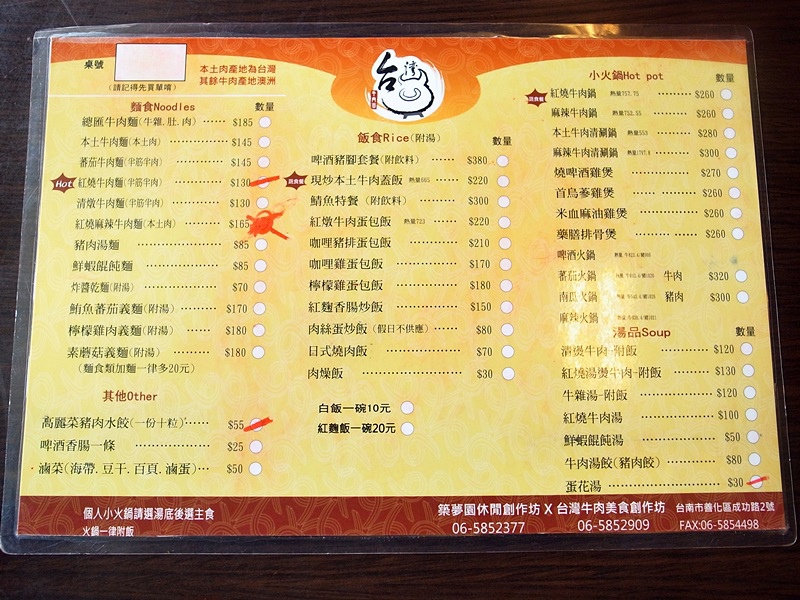 桌號
(請記得先買單唷)
本土肉產地為台灣
其餘牛肉產地澳洲
台灣
麵食Noodles 數量
總匯牛肉麵(牛雜.肚.肉) $185
本土牛肉麵(本土肉) $145
蕃茄牛肉麵(半筋半肉) $145
Hot 紅燒牛肉麵(半筋半肉) $130
清燉牛肉麵(半筋半肉) $130
紅燒麻辣牛肉麵(本土肉) $165
豬肉湯麵 $85
鮮蝦餛飩麵 $85
炸醬乾麵(附湯) $70
鮪魚蕃茄義麵(附湯) $170
檸檬雞肉義麵(附湯) $180
素蘑菇義麵(附湯) $180
(麵食類加麵一律多20元)
其他Other
高麗菜豬肉水餃(一份十粒) $55
啤酒香腸一條 $25
滷菜(海帶.豆干.百頁.滷蛋) $50
飯食Rice(附湯) 數量
啤酒豬腳套餐(附飲料) $380
蔬食餐 現炒本土牛肉蓋飯 熱量665 $220
鯖魚特餐 (附飲料) $300
紅燉牛肉蛋包飯 熱量723 $220
咖哩豬排蛋包飯 $210
咖哩雞蛋包飯 $170
檸檬雞蛋包飯 $180
紅麴香腸炒飯 $150
肉絲蛋炒飯(假日不供應) $80
日式燒肉飯 $70
肉燥飯 $30
白飯一碗10元
紅麴飯一碗20元
小火鍋Hot pot 數量
蔬食餐 紅燒牛肉鍋 熱量757.75 $260
麻辣牛肉鍋 熱量752.55 $260
本土牛肉清涮鍋 熱量553 $280
麻辣牛肉清涮鍋 $300
燒啤酒雞煲 $270
首烏蔘雞煲 $260
米血麻油雞煲 $260
藥膳排骨煲 $260
啤酒火鍋
蕃茄火鍋 牛肉 $320
南瓜火鍋 豬肉 $300
麻辣火鍋
湯品Soup 數量
清燙牛肉-附飯 $120
紅燒湯燙牛肉-附飯 $130
牛雜湯-附飯 $120
紅燒牛肉湯 $100
鮮蝦餛飩湯 $50
牛肉湯餃(豬肉餃) $80
蛋花湯 $30
個人小火鍋請選湯底後選主食
火鍋一律附飯
築夢園休閒創作坊 X 台灣牛肉美食創作坊 台南市善化區成功路2號
06-5852377 06-5852909 FAX:06-5854498